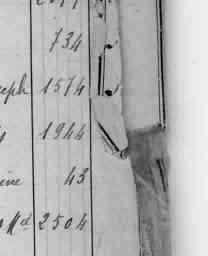 734
seph 1574
1944
ène 43
Md 2504